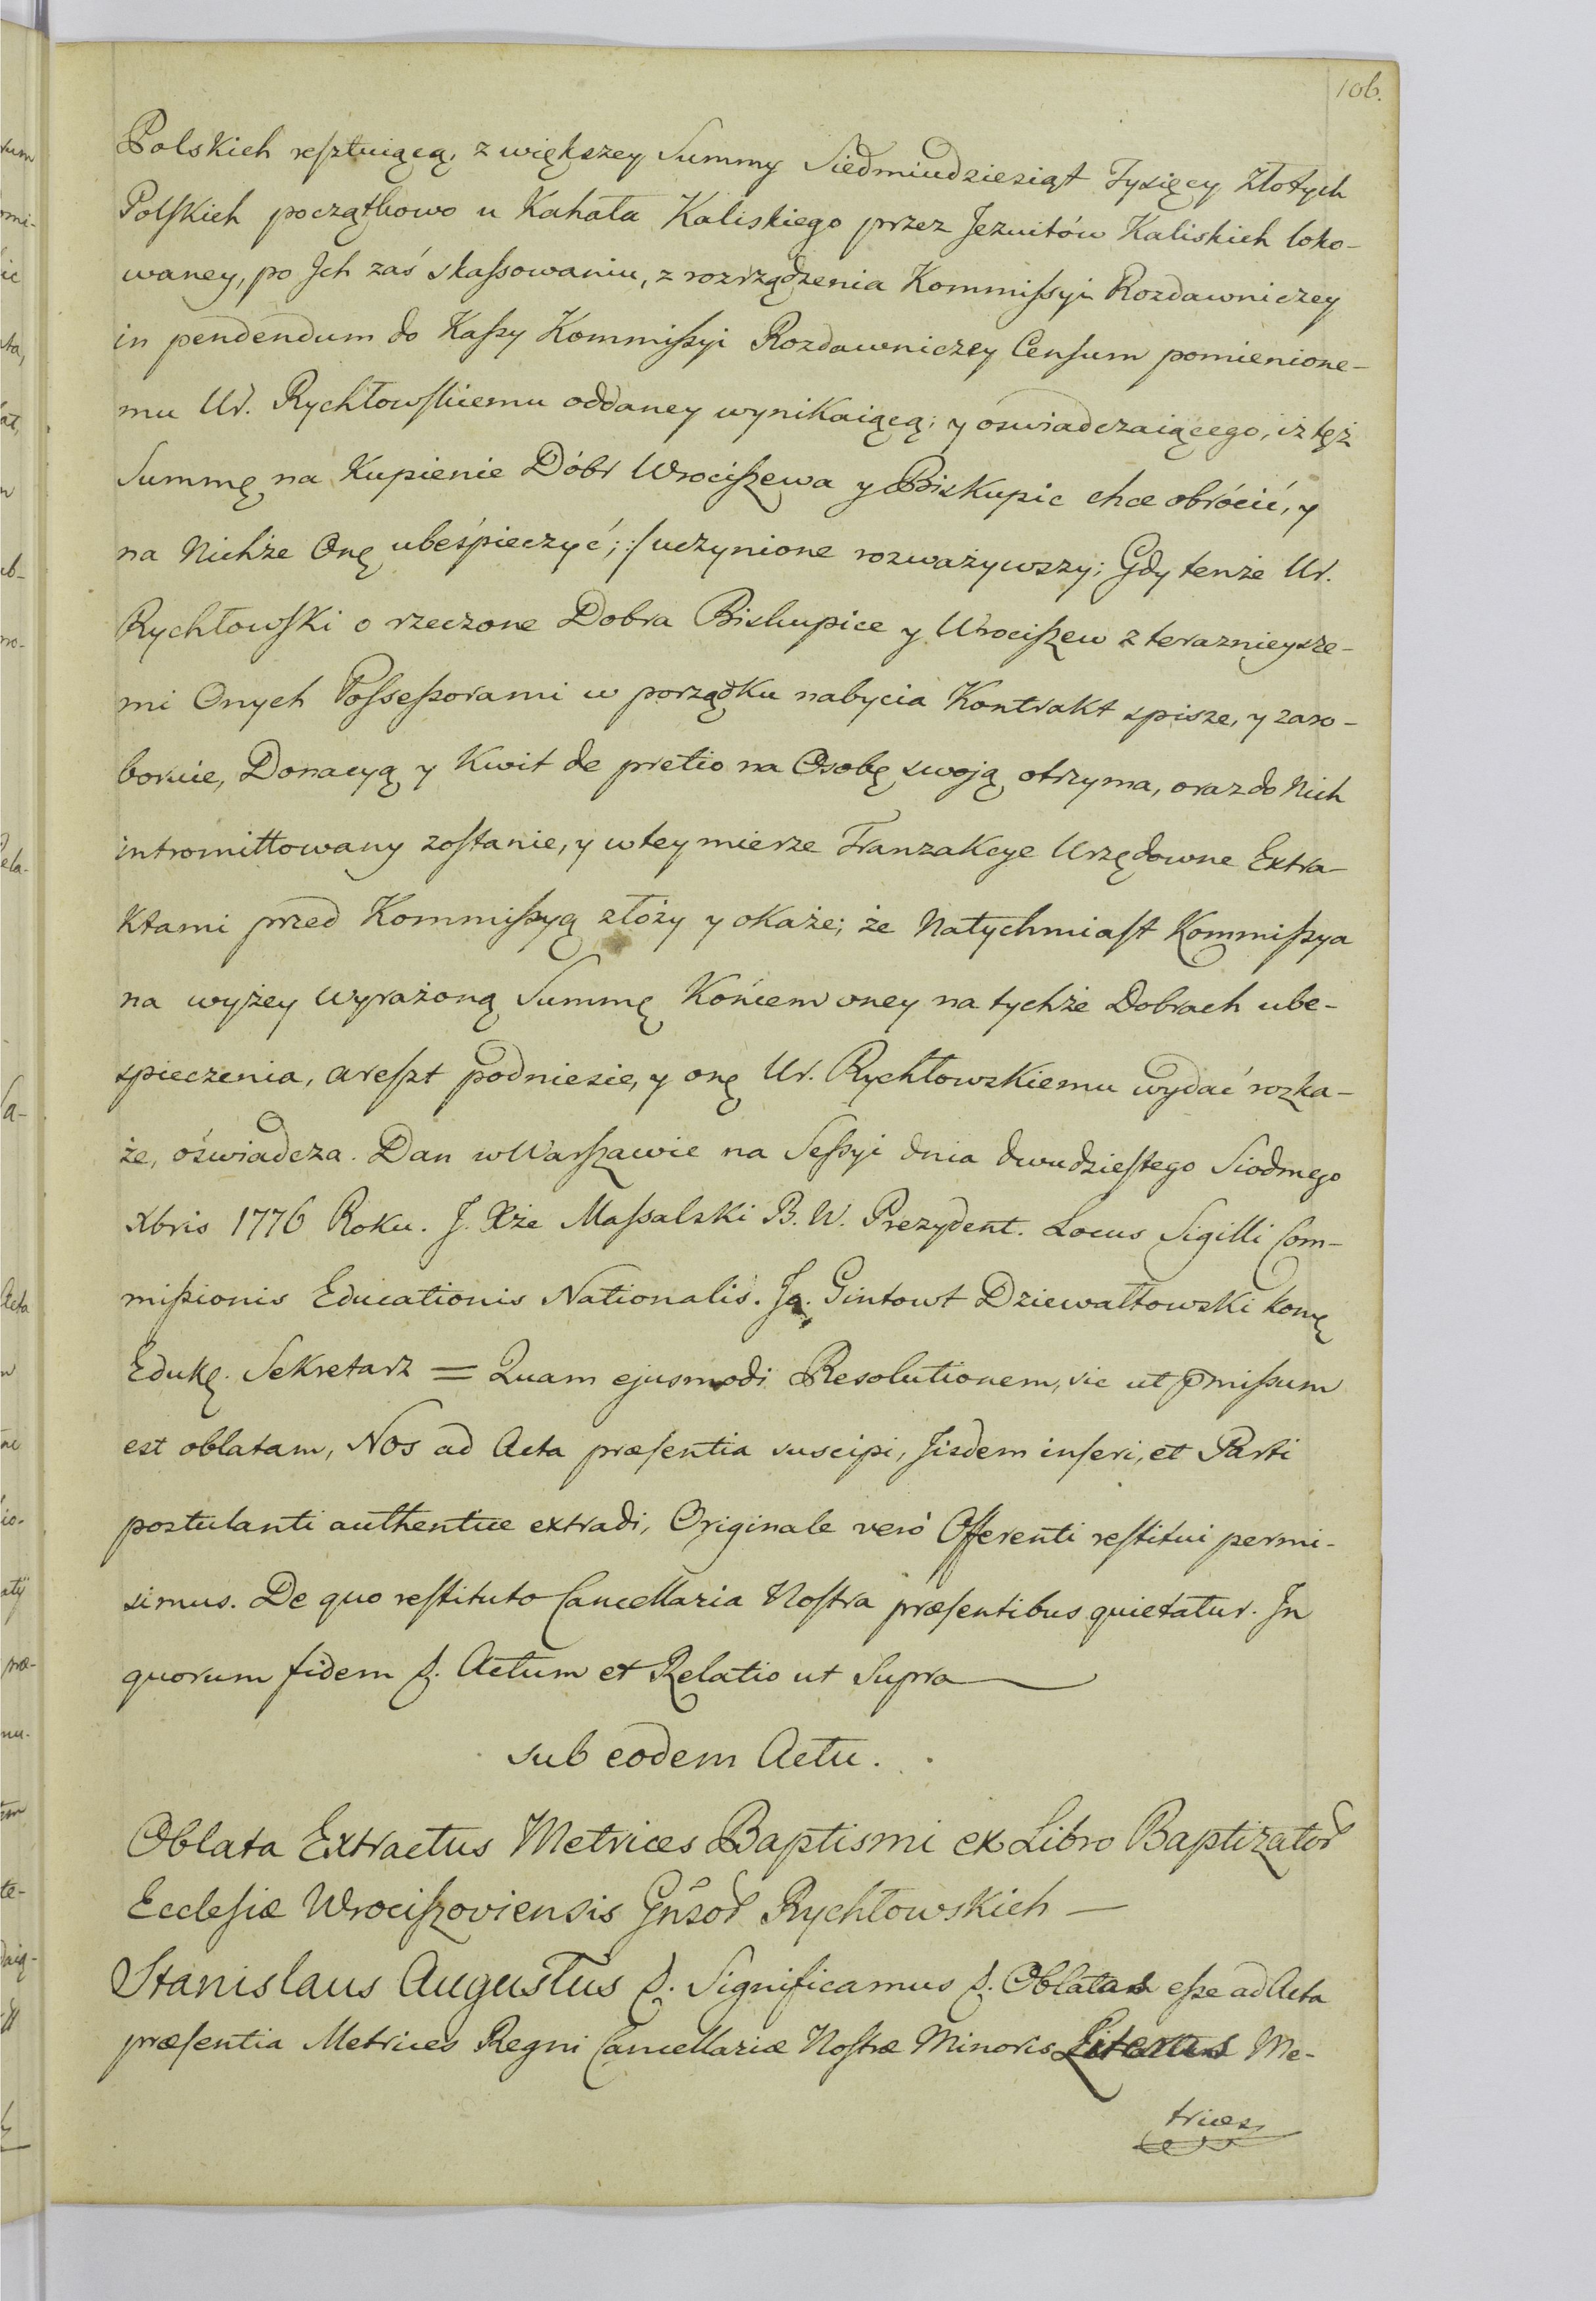 106.
Polskich resztuiącą, z większey Summy Siedmiudziesiąt Tysięcy Złotych
Polſkich początkowo u Kahała Kaliskiego przez Jezuitów Kaliskich loko-
waney, po Jch zaś skaſsowaniu, z rozrządzenia Kommiſsyi Rozdawniczey
in pendendum do Kaſsy Kommiſsyi Rozdawniczey Cenſum pomienione-
mu Ur. Rychłowſkiemu oddaney wynikaiącą; y oswiadczaiącego, iż tęż
Summę na Kupienie Dóbr Wrociſzewa y Biskupic chce obrócić, y
na Nichże Onę ubeśpieczyć; :/ uczynione rozważywszy; Gdy tenże Ur.
Rychłowſki o rzeczone Dobra Biskupice y Wrociſzew z teraznieysze-
mi Onych Poſseſsorami w porządku nabycia Kontrakt spisze, y zaro-
boruie, Donacyą y Kwit de pretio na Osobę swoją otrzyma, oraz do Nich
intromittowany zoſtanie, y w tey mierze Tranzakcye Urzędowne Extra-
ktami przed Kommiſsyą złoży y okaże; że Natychmiaſt Kommiſsya
na wyżey wyrażoną Summę Końcem oney na tychże Dobrach ube-
spieczenia, areſzt podniesie, y onę Ur. Rychłowskiemu wydać rozka-
że, oświadcza. Dan w Warſzawie na Seſsyi dnia dwudzieſtego Siodmego
Xbris 1776 Roku. J. Xże Maſsalski B. W. Prezydent. Locus Sigilli Com-
miſsionis Educationis Nationalis. Jg. Gintowt Dziewałtowski Komę
Edukę. Sekretarz = Quam ejusmodi Resolutionem, sic ut p̄miſsum
est oblatam, Nos ad Acta præſentia suscipi, Jisdem inſeri, et Parti
postulanti authentice extradi, Originale verò Offerenti reſtitui permi-
simus. De quo reſtituto Cancellaria Noſtra præſentibus quietatur. Jn
quorum fidem &. Actum et Relatio ut Supra
sub eodem Actu.
Oblata Extractus Metrices Baptismi ex Libro Baptizator̄
Eccleſiæ Wrociſzoviensis Gn̄sor̄ Rychłowskich —
Stanislaus Augustus &. Significamus &. Oblatas eſse ad Acta
præſentia Metrices Regni Cancellariæ Noſtræ Minoris Literas Me-
trices